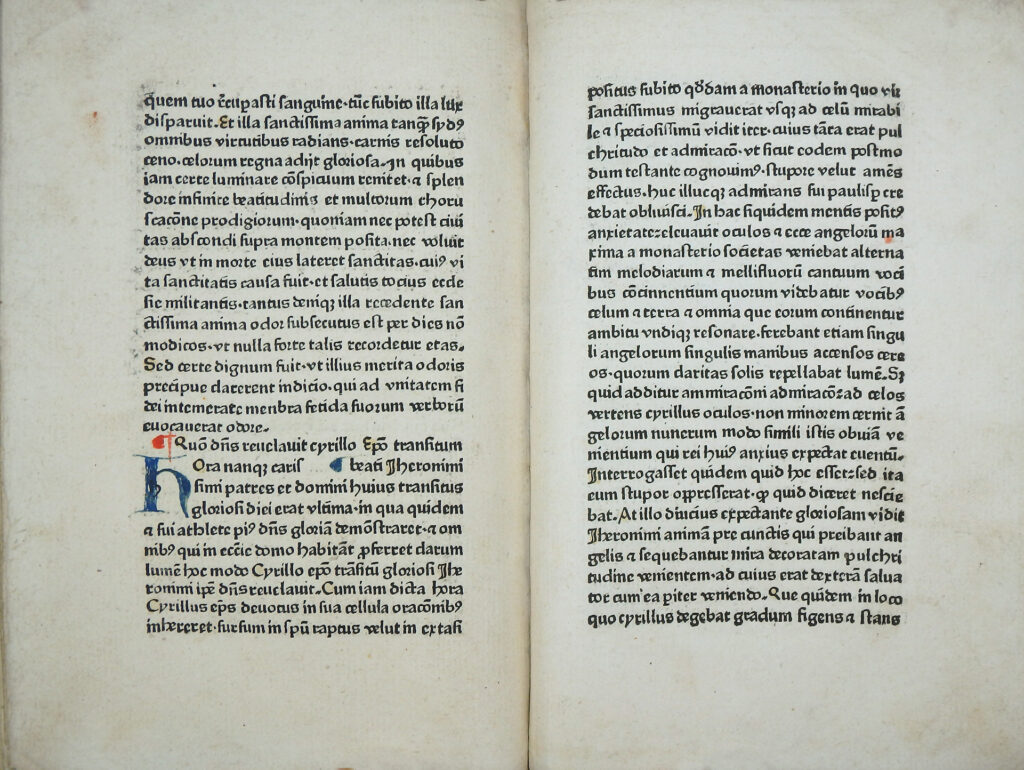 quem tuo r̄cupasti sanguine·tūc subito illa lux
disparuit. Et illa sanctissima anima tanq̄ sydꝰ
omnibus virtutibus radians·carnis resoluto
ceno·celorum regna adijt gloriosa·in quibus
iam certe luminare cōspicuum renitet·⁊ splen
dore infinite beatitudinis et multorum choru
scacōne prodigiorum·quoniam nec potest ciui
tas abscondi supra montem posita·nec voluit
deus vt in morte eius lateret sanctitas·cuiꝰ vi
ta sanctitatis causa fuit·et salutis tocius eccle
sie militantis·tantus deniqꝫ illa recedente san
ctissima anima odor subsecutus est per dies nō
modicos·vt nulla forte talis recordetur etas.
Sed certe dignum fuit·vt illius merita odoris
precipue clarerent indicio·qui ad vnitatem fi
dei intemerate menbra fetida suorum verborū
euocauerat odore.
¶ Quō dn̄s reuelauit cyrillo Ep̄o transitum
Hora nanqꝫ caris beati Jheronimi
simi patres et domini huius transitus
gloriosi diei erat vltima·in qua quidem
⁊ sui athlete piꝰ dn̄s gloriā demōstraret·⁊ om
nibꝰ qui in ecc̄ie domo habitāt ꝓferret clarum
lumē hoc modo Cyrillo ep̄o trāsitū gloriosi Jhe
ronimi ip̄e dn̄s reuelauit. Cum iam dicta hora
Cyrillus ep̄s deuotus in sua cellula oracōnibꝰ
inhereret·sursum in sp̄u raptus velut in extasi
positus subito qd̄dam a monasterio in quo vir
sanctissimus migrauerat vsqꝫ ad celū mirabi
le ⁊ speciosissimū vidit iter·cuius tāta erat pul
chritudo et admiracō·vt sicut eodem postmo
dum testante cognouimꝰ·stupore velut amēs
effectus·huc illucqꝫ admirans fui paulisꝑ cre
debat obliuisci. In hac siquidem mentis positꝰ
anxietate:eleuauit oculos ⁊ ecce angelorū ma
xima a monasterio societas veniebat alterna
tim melodiarum ⁊ mellifluorū cantuum voci
bus cōcinnentium quorum videbatur vocibꝰ
celum ⁊ terra ⁊ omnia que eorum continentur
ambitu vndiqꝫ resonare·ferebant etiam singu
li angelorum singulis manibus accensos cere
os·quorum claritas solis repellabat lumē. Sꝫ
quid additur ammiracōni admiracō:ad celos
vertens cyrillus oculos·non minorem cernit ā
gelorum numerum modo simili istis obuiā ve
nientium qui rei huiꝰ anxius expectat euentū.
Interrogasset quidem quid hoc esset:sed ita
eum stupor oppresserat·ꝙ quid diceret nescie
bat. At illo diucius expectante gloriosam vidit
Jheronimi animā pre cunctis qui preibant an
gelis ⁊ sequebantur mira decoratam pulchri
tudine venientem·ad cuius erat dexterā salua
tor cum ea piter veniendo. Que quidem in loco
quo cyrillus degebat gradum figens ⁊ stans